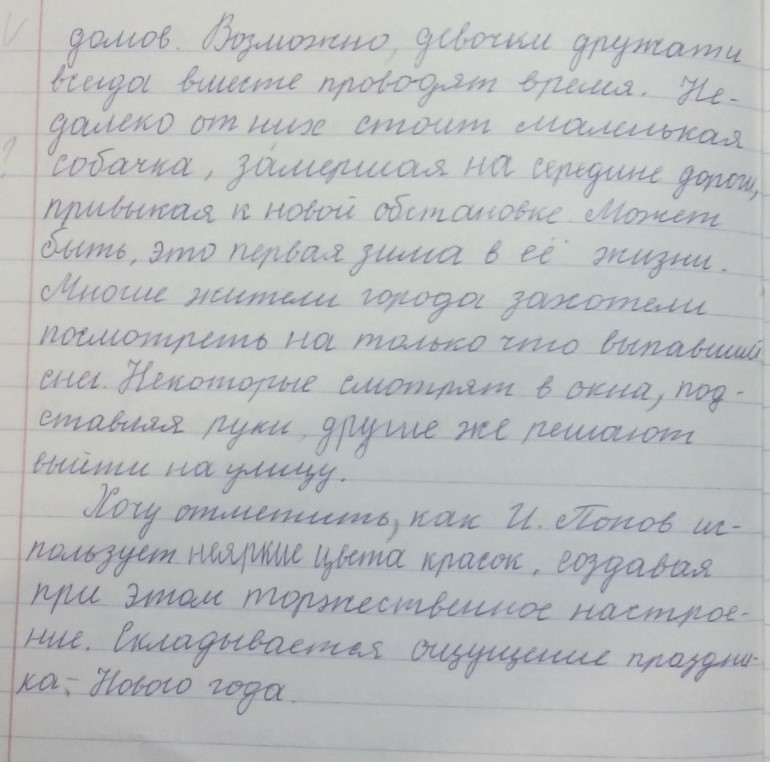 домов. Возможно, девочки дружат и
всегда вместе проводят время. Не-
далеко от них стоит маленькая
собачка, замершая на середине дороги,
привыкая к новой обстановке. Может
быть, это первая зима в её жизни.
Многие жители города захотели
посмотреть на только что выпавший
снег. Некоторые смотрят в окна, под-
ставляя руки, другие же решают
выйти на улицу.
Хочу отметить, как И. Попов ис-
пользует неяркие цвета красок, создавая
при этом торжественное настрое-
ние. Складывается ощущение праздни-
ка,- Нового года.